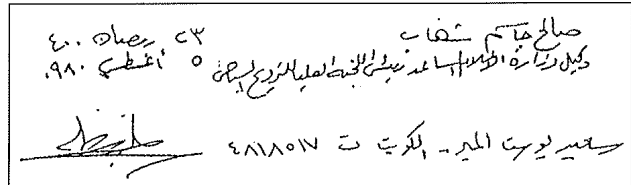 صالح جاسم شهاب ٢٣ رمضان ١٤٠٠
وكيل وزارة الإعلام المساعد رئيس اللجنة العليا للترويح السياحي ٥ أغسطس ٩٨٠
الكويت ت ٤٨١٨٥١٧